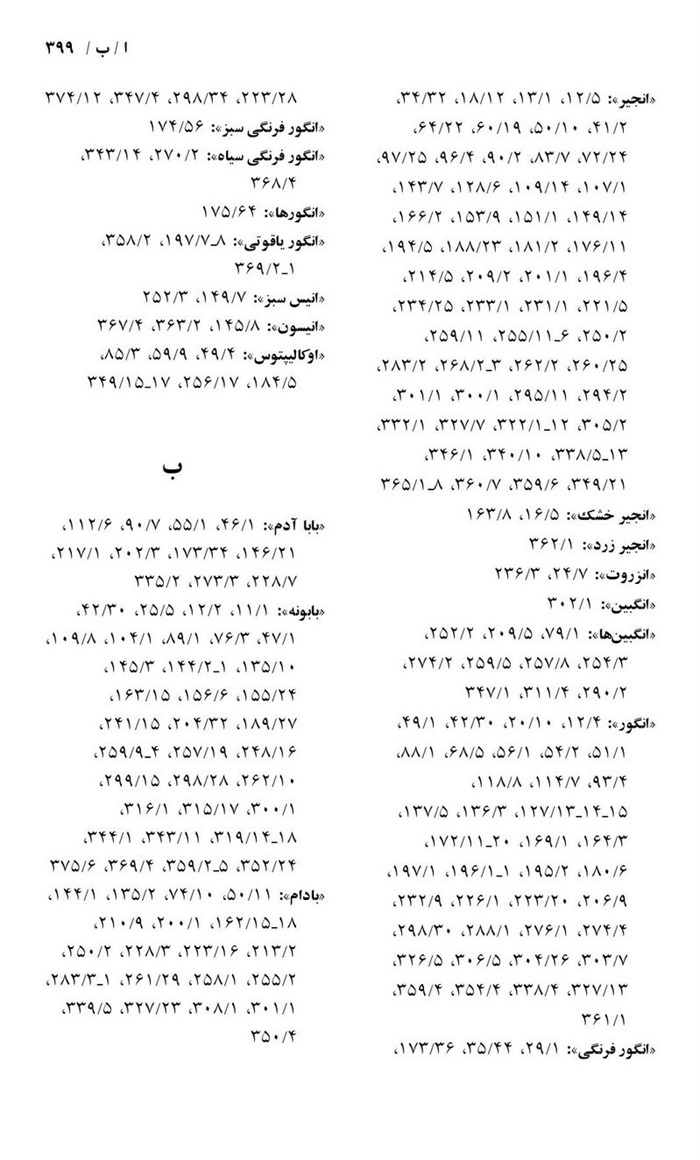 ا / ب / ۳۹۹
«انجیر»: ۱۲/۵، ۱۳/۱، ۱۸/۱۲، ۳۴/۳۲،
۴۱/۲، ۵۰/۱۰، ۶۰/۱۹، ۶۴/۲۲،
۷۲/۲۴، ۸۳/۷، ۹۰/۲، ۹۶/۴، ۹۷/۲۵،
۱۰۷/۱، ۱۰۹/۱۴، ۱۲۸/۶، ۱۴۳/۷،
۱۴۹/۱۴، ۱۵۱/۱، ۱۵۳/۹، ۱۶۶/۲،
۱۷۶/۱۱، ۱۸۱/۲، ۱۸۸/۲۳، ۱۹۴/۵،
۱۹۶/۴، ۲۰۱/۱، ۲۰۹/۲، ۲۱۴/۵،
۲۲۱/۵، ۲۳۱/۱، ۲۳۳/۱، ۲۳۴/۲۵،
۲۵۰/۲، ۶_۲۵۵/۱۱، ۲۵۹/۱۱،
۲۶۰/۲۵، ۲۶۲/۲، ۳_۲۶۸/۲، ۲۸۳/۲،
۲۹۴/۲، ۲۹۵/۱۱، ۳۰۰/۱، ۳۰۱/۱،
۳۰۵/۲، ۱۲_۳۲۲/۱، ۳۲۷/۷، ۳۳۲/۱،
۱۳_۳۳۸/۵، ۳۴۰/۱۰، ۳۴۶/۱،
۳۴۹/۲۱، ۳۵۹/۶، ۳۶۰/۷، ۸_۳۶۵/۱
«انجیر خشک»: ۱۶/۵، ۱۶۳/۸
«انجیر زرد»: ۳۶۲/۱
«انزروت»: ۲۴/۷، ۲۳۶/۳
«انگبین»: ۳۰۲/۱
«انگبین‌ها»: ۷۹/۱، ۲۰۹/۵، ۲۵۲/۲،
۲۵۴/۳، ۲۵۷/۸، ۲۵۹/۵، ۲۷۴/۲،
۲۹۰/۲، ۳۱۱/۴، ۳۴۷/۱
«انگور»: ۱۲/۴، ۲۰/۱۰، ۴۲/۳۰، ۴۹/۱،
۵۱/۱، ۵۴/۲، ۵۶/۱، ۶۸/۵، ۸۸/۱،
۹۳/۴، ۱۱۴/۷، ۱۱۸/۸،
۱۵_۱۴_۱۲۷/۱۳، ۱۳۶/۳، ۱۳۷/۵،
۱۶۴/۳، ۱۶۹/۱، ۲۰_۱۷۲/۱۱،
۱۸۰/۶، ۱۹۵/۲، ۱_۱۹۶/۱، ۱۹۷/۱،
۲۰۶/۹، ۲۲۳/۲۰، ۲۲۶/۱، ۲۳۲/۹،
۲۷۴/۴، ۲۷۶/۱، ۲۸۸/۱، ۲۹۸/۳۰،
۳۰۳/۷، ۳۰۴/۲۶، ۳۰۶/۵، ۳۲۶/۵،
۳۲۷/۱۳، ۳۳۸/۴، ۳۵۴/۴، ۳۵۹/۴،
۳۶۱/۱
«انگور فرنگی»: ۲۹/۱، ۳۵/۴۴، ۱۷۳/۳۶،
۲۲۳/۲۸، ۲۹۸/۳۴، ۳۴۷/۴، ۳۷۴/۱۲
«انگور فرنگی سبز»: ۱۷۴/۵۶
«انگور فرنگی سیاه»: ۲۷۰/۲، ۳۴۳/۱۴،
۳۶۸/۴
«انگورها»: ۱۷۵/۶۴
«انگور یاقوتی»: ۸_۱۹۷/۷، ۳۵۸/۲،
۱_۳۶۹/۲
«انیس سبز»: ۱۴۹/۷، ۲۵۲/۳
«انیسون»: ۱۴۵/۸، ۳۶۳/۲، ۳۶۷/۴
«اوکالیپتوس»: ۴۹/۴، ۵۹/۹، ۸۵/۳،
۱۸۴/۵، ۲۵۶/۱۷، ۱۷_۳۴۹/۱۵
ب
«بابا آدم»: ۴۶/۱، ۵۵/۱، ۹۰/۷، ۱۱۲/۶،
۱۴۶/۲۱، ۱۷۳/۳۴، ۲۰۲/۳، ۲۱۷/۱،
۲۲۸/۷، ۲۷۳/۳، ۳۳۵/۲
«بابونه»: ۱۱/۱، ۱۲/۲، ۲۵/۵، ۴۲/۳۰،
۴۷/۱، ۷۶/۳، ۸۹/۱، ۱۰۴/۱، ۱۰۹/۸،
۱۳۵/۱۰، ۱_۱۴۴/۲، ۱۴۵/۳،
۱۵۵/۲۴، ۱۵۶/۶، ۱۶۳/۱۵،
۱۸۹/۲۷، ۲۰۴/۳۲، ۲۴۱/۱۵،
۲۴۸/۱۶، ۲۵۷/۱۹، ۴_۲۵۹/۹،
۲۶۲/۱۰، ۲۹۸/۲۸، ۲۹۹/۱۵،
۳۰۰/۱، ۳۱۵/۱۷، ۳۱۶/۱،
۱۸_۳۱۹/۱۴، ۳۴۳/۱۱، ۳۴۴/۱،
۳۵۲/۲۴، ۵_۳۵۹/۲، ۳۶۹/۴، ۳۷۵/۶
«بادام»: ۵۰/۱۱، ۷۴/۱۰، ۱۳۵/۲، ۱۴۴/۱،
۱۸_۱۶۲/۱۵، ۲۰۰/۱، ۲۱۰/۹،
۲۱۳/۲، ۲۲۳/۱۶، ۲۲۸/۳، ۲۵۰/۲،
۲۵۵/۲، ۲۵۸/۱، ۲۶۱/۲۹، ۱_۲۸۳/۳،
۳۰۱/۱، ۳۰۸/۱، ۳۲۷/۲۳، ۳۳۹/۵،
۳۵۰/۴